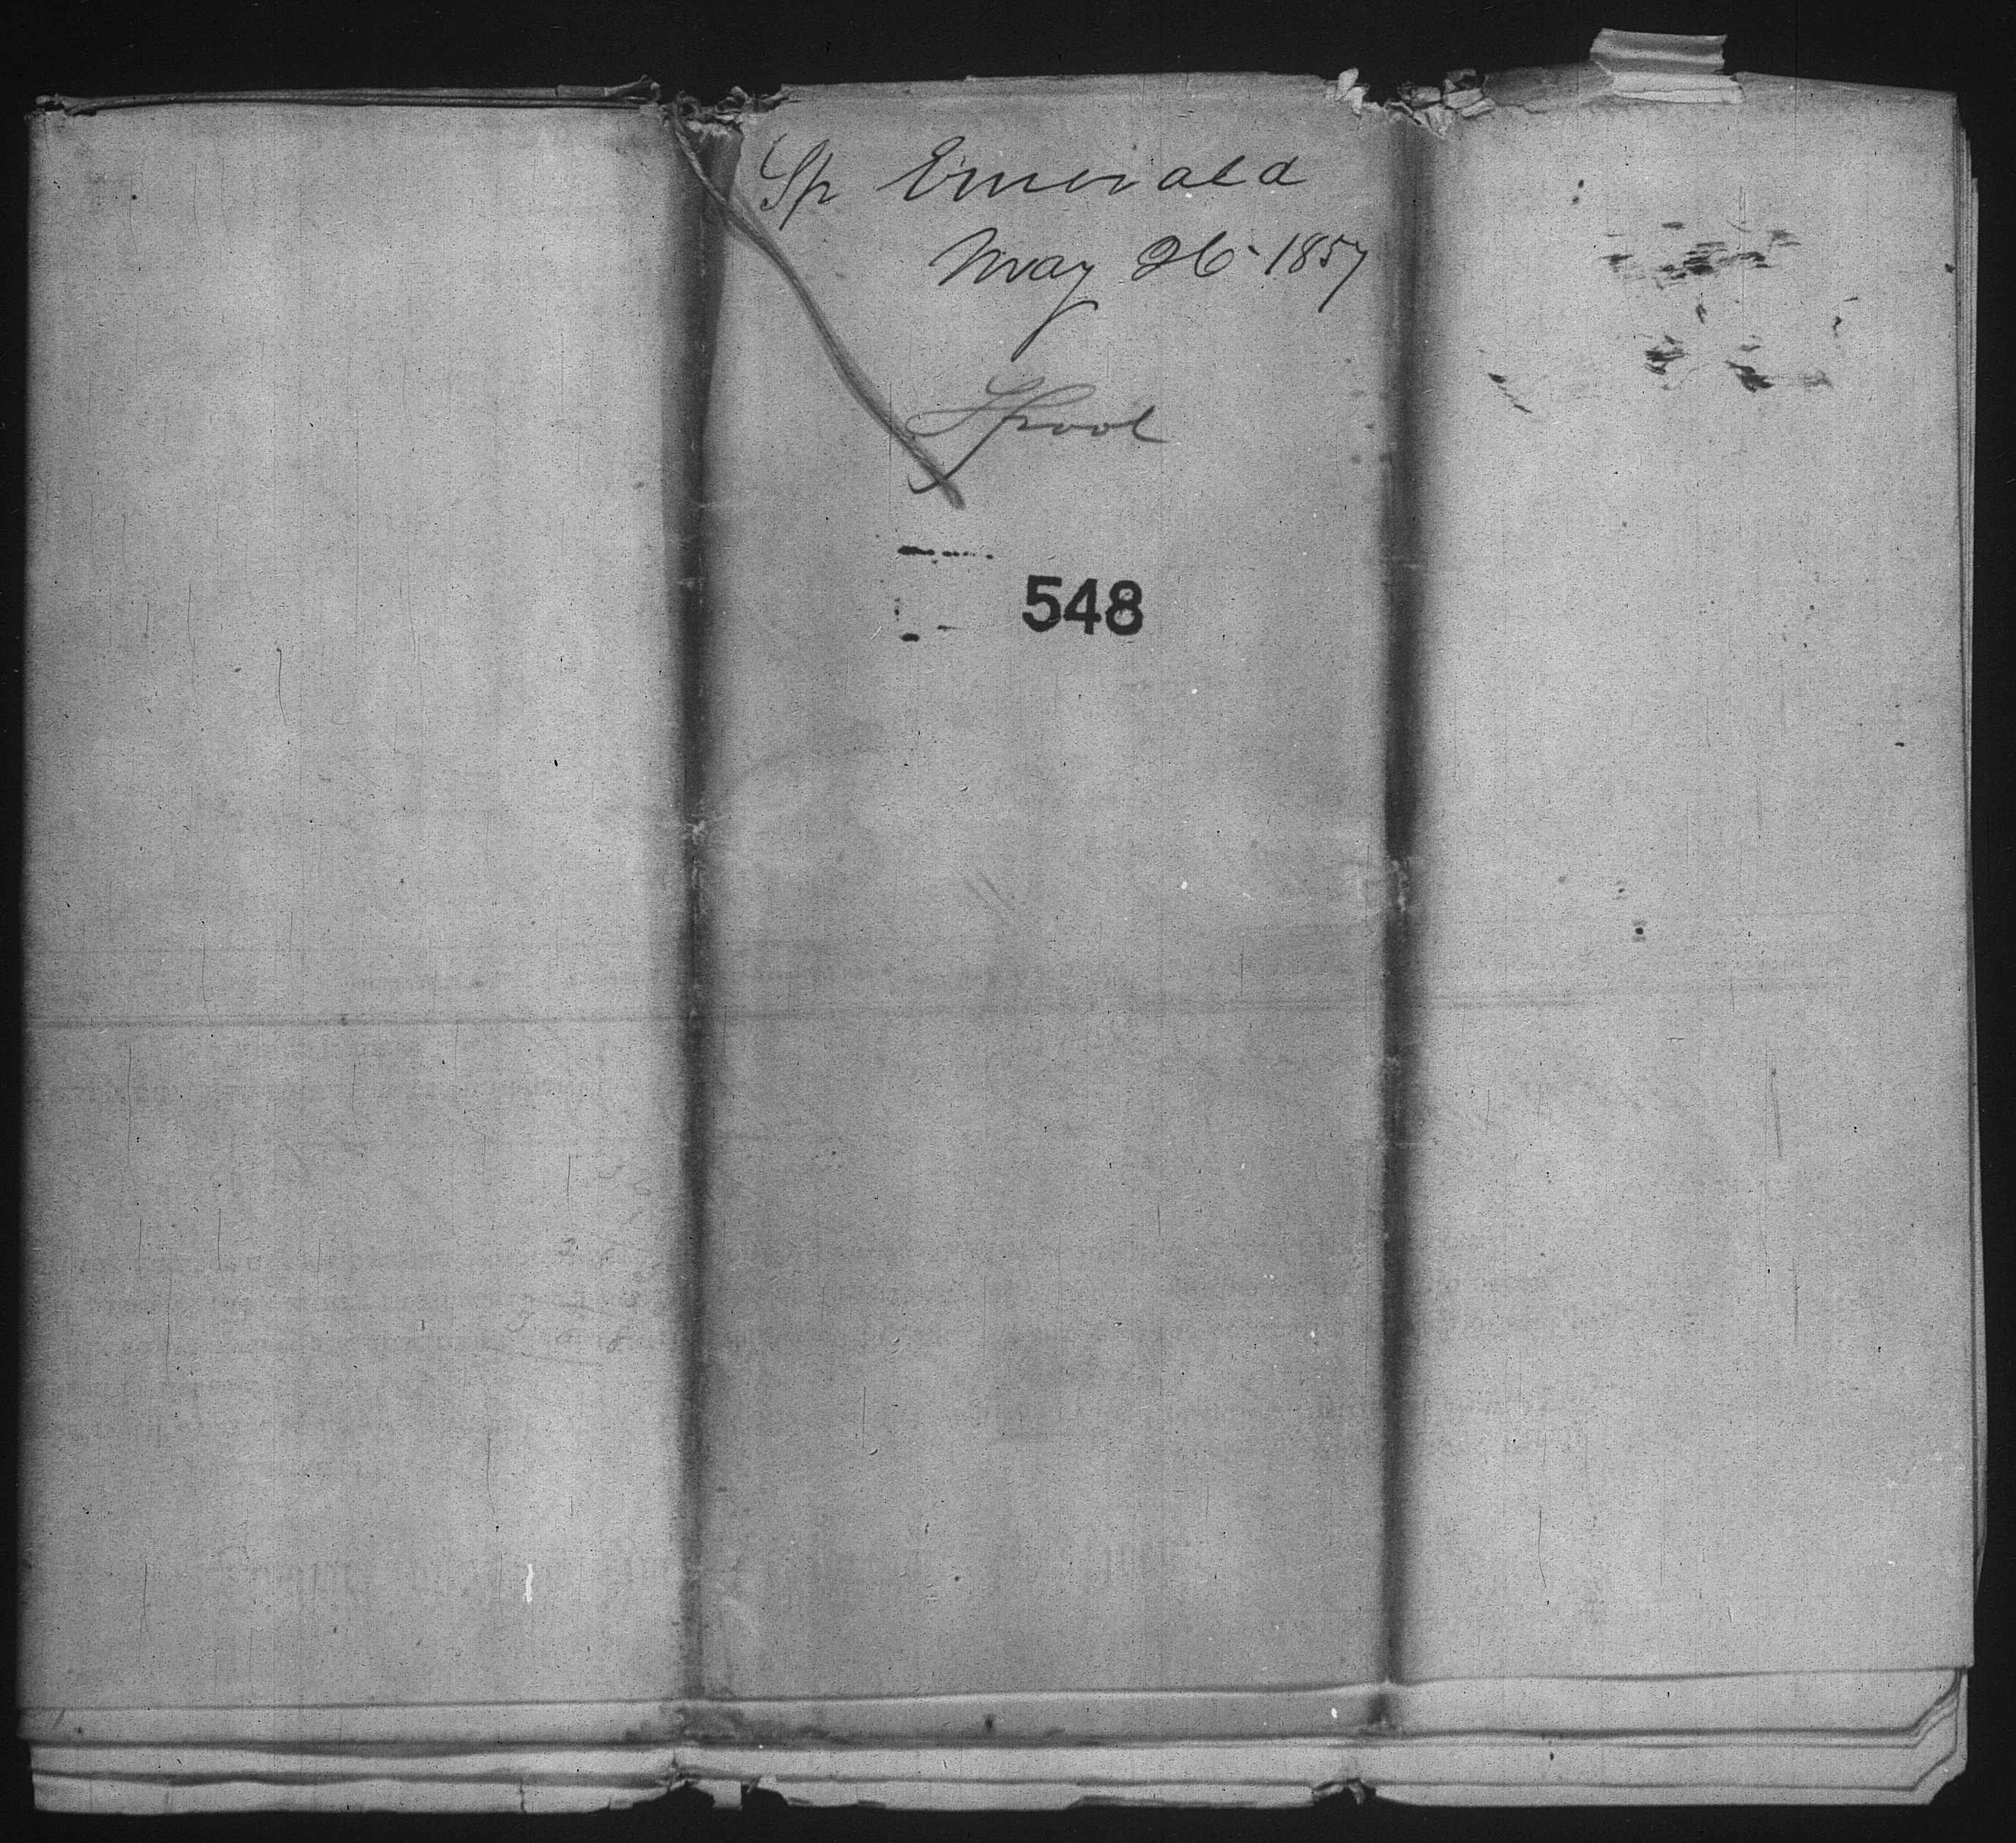 Sp Emerald
May 26-1857
Lpool
548